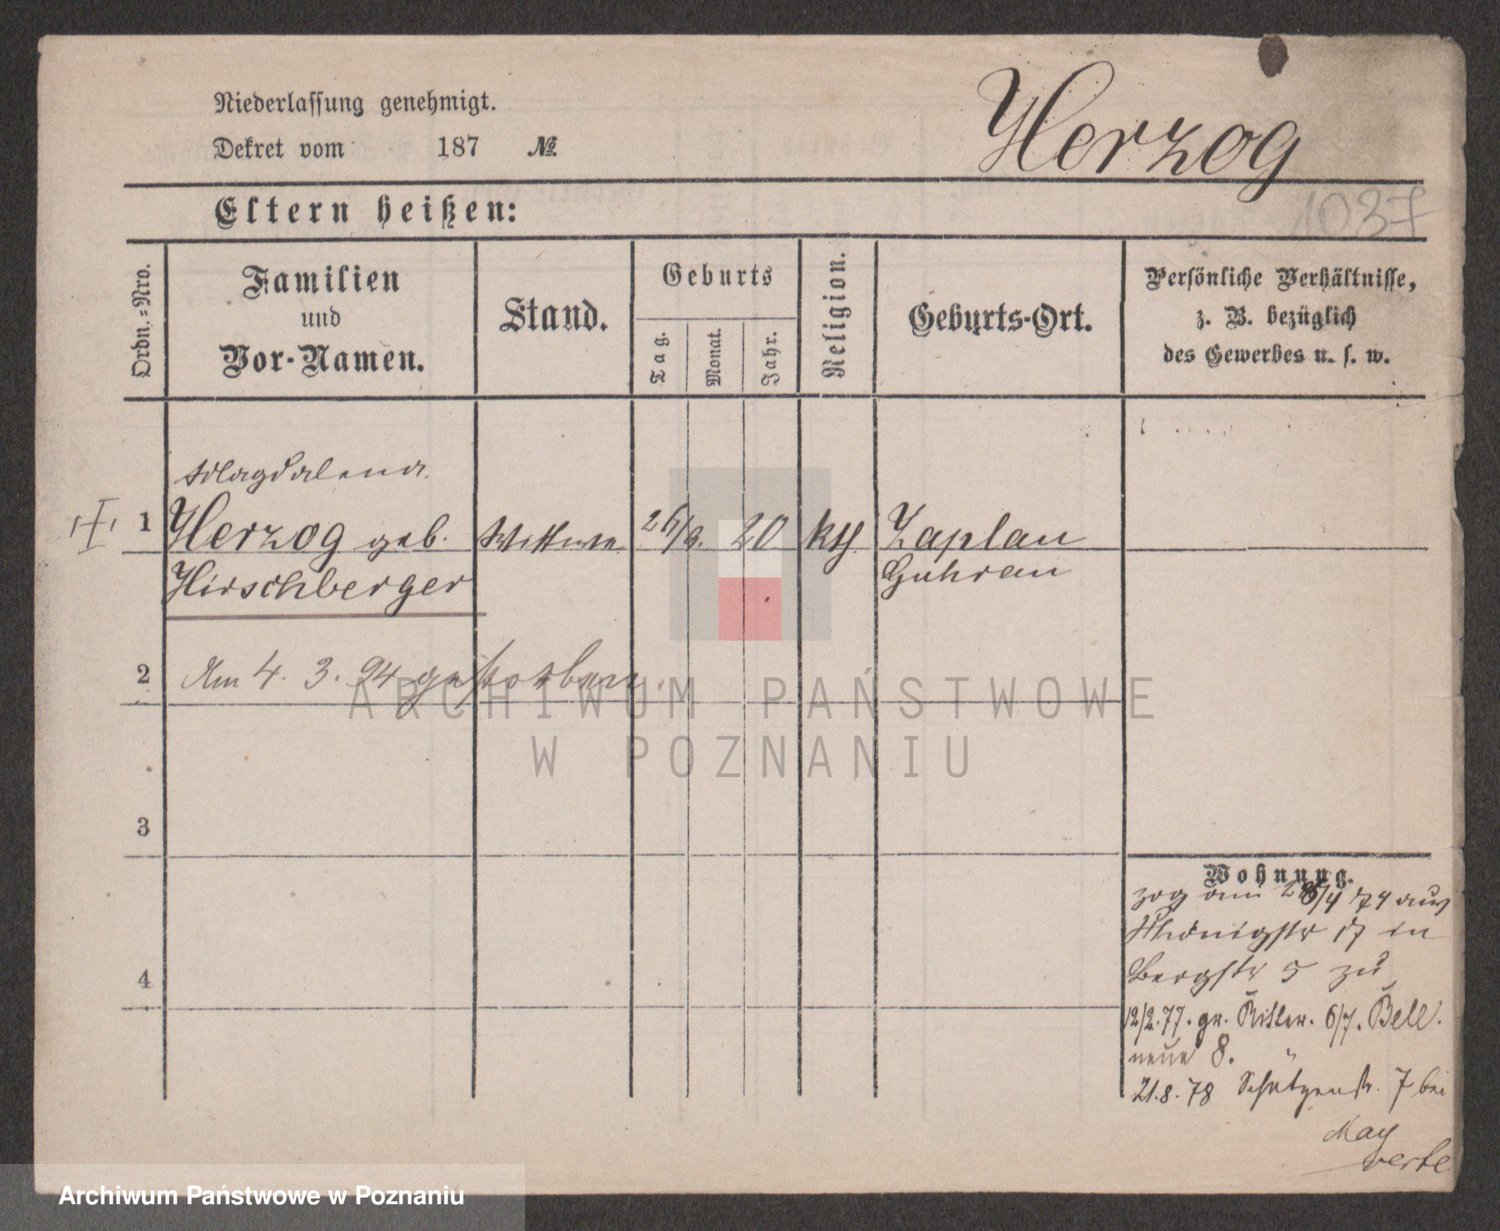 Niederlassung genehmigt.
Dekret vom 187 №
Herzog
1037
Eltern heißen:
Ordn.-Nro.
Familien
und
Vor-Namen.
Stand.
Geburts
Tag.
Monat.
Jahr.
Religion.
Geburts-Ort.
Persönliche Verhältnisse,
z. B. bezüglich
des Gewerbes u. s. w.
Magdalena
1 Herzog geb. Wittwe 20 Zaplau
Hirschberger Guhrau
2 Am 4. 3. 94 gestorben.
3
4
Wohnung.
zog am /4 74 aus
in
Bergstr 5 zu
12/2.77. gr. Ritter. 6/7. Belle
neue 8.
21.8.78 Schützenstr. 7 bei
ARCHIWUM PAŃSTWOWE
W POZNANIU
Archiwum Państwowe w Poznaniu